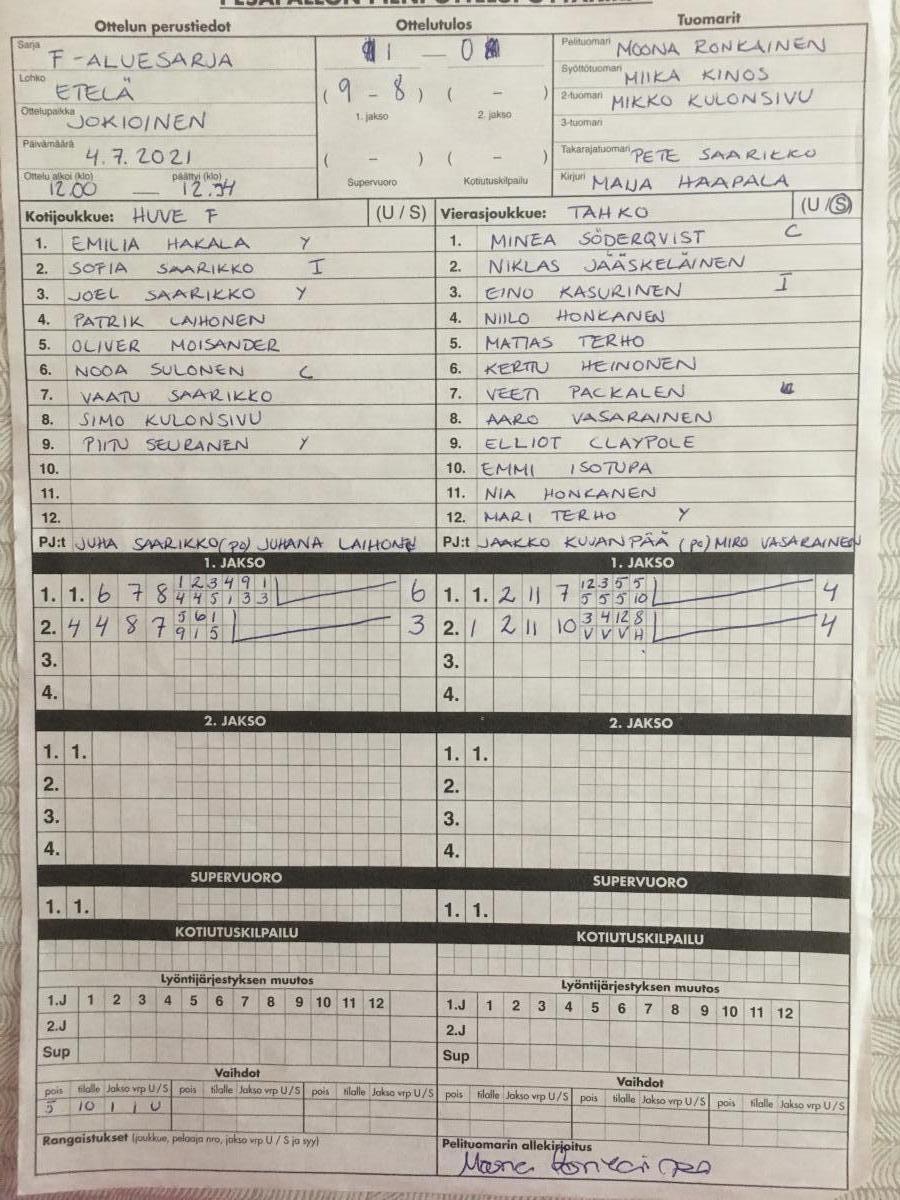 Ottelun perustiedot
Sarja F-ALUESARJA
Lohko ETELÄ
Ottelupaikka JOKIOINEN
Päivämäärä 4.7.2021
Ottelu alkoi (klo) päättyi (klo)
12.00 — 12.34
Ottelutulos
1 — 0
(9 - 8) ( - )
1. jakso 2. jakso
( - ) ( - )
Supervuoro Kotiutuskilpailu
Tuomarit
Pelituomari MOONA RONKAINEN
Syöttötuomari MIIKA KINOS
2-tuomari MIKKO KULONSIVU
3-tuomari
Takarajatuomari PETE SAARIKKO
Kirjuri MAIJA HAAPALA
Kotijoukkue: HUVE F (U / S)
1. EMILIA HAKALA Y
2. SOFIA SAARIKKO I
3. JOEL SAARIKKO Y
4. PATRIK LAIHONEN
5. OLIVER MOISANDER
6. NOOA SULONEN C
7. VAATU SAARIKKO
8. SIMO KULONSIVU
9. PIITU SEURANEN Y
10.
11.
12.
PJ:t JUHA SAARIKKO (po) JUHANA LAIHONEN
Vierasjoukkue: TAHKO (U / S)
1. MINEA SÖDERQVIST C
2. NIKLAS JÄÄSKELÄINEN
3. EINO KASURINEN I
4. NIILO HONKANEN
5. MATIAS TERHO
6. KERTTU HEINONEN
7. VEETI PACKALEN
8. AARO VASARAINEN
9. ELLIOT CLAYPOLE
10. EMMI ISOTUPA
11. NIA HONKANEN
12. MARI TERHO Y
PJ:t JAAKKO KUJANPÄÄ (po) MIRO VASARAINEN
1. JAKSO
1. 1. 6 7 8 1 2 3 4 9 1 6
4 4 5 1 3 3
2. 4 4 8 7 5 6 1 3
9 1 5
3.
4.
1. JAKSO
1. 1. 2 11 7 12 3 5 5 4
5 5 5 10
2. 1 2 11 10 3 4 12 8 4
V V V H
3.
4.
2. JAKSO
1. 1.
2.
3.
4.
2. JAKSO
1. 1.
2.
3.
4.
SUPERVUORO
1. 1.
SUPERVUORO
1. 1.
KOTIUTUSKILPAILU
KOTIUTUSKILPAILU
Lyöntijärjestyksen muutos
1.J 1 2 3 4 5 6 7 8 9 10 11 12
2.J
Sup
Lyöntijärjestyksen muutos
1.J 1 2 3 4 5 6 7 8 9 10 11 12
2.J
Sup
Vaihdot
pois tilalle Jakso vrp U/S pois tilalle Jakso vrp U/S pois tilalle Jakso vrp U/S
5 10 1 1 U
Vaihdot
pois tilalle Jakso vrp U/S pois tilalle Jakso vrp U/S pois tilalle Jakso vrp U/S
Rangaistukset (joukkue, pelaaja nro, jakso vrp U / S ja syy)
Pelituomarin allekirjoitus